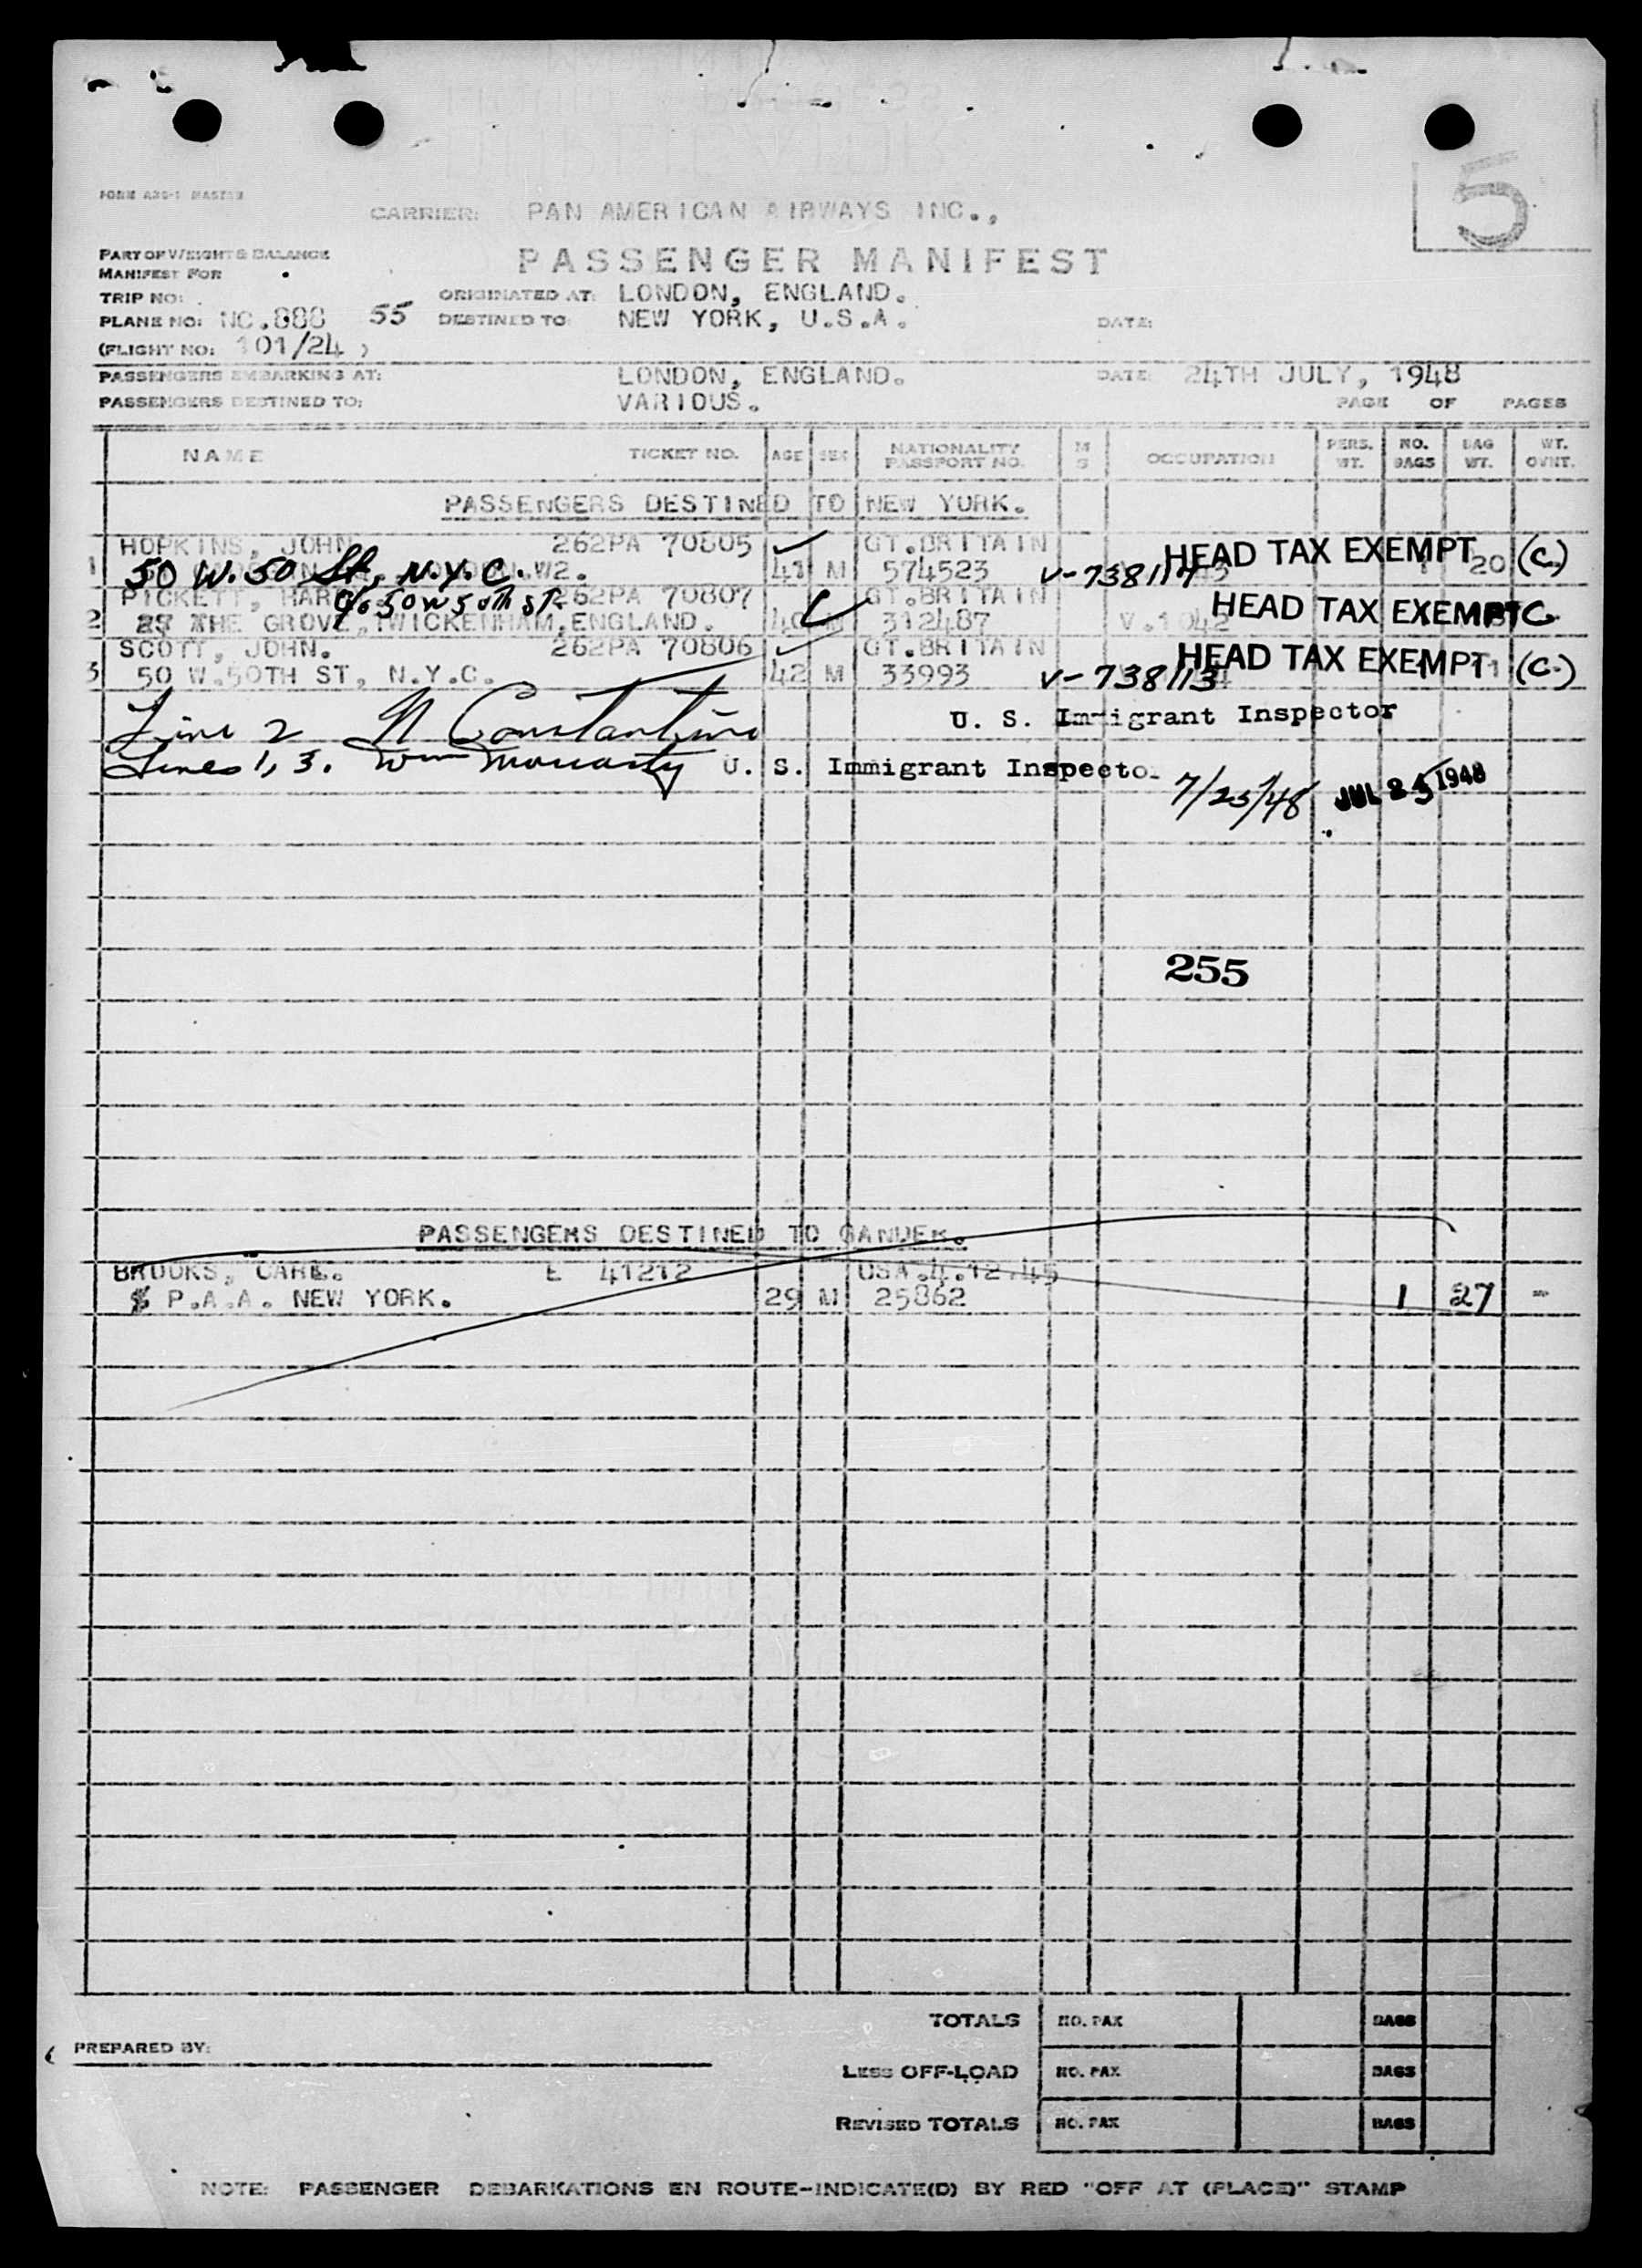 5
FORM
CARRIER: PAN AMERICAN AIRWAYS INC.,
PART OF WEIGHT & BALANCE
MANIFEST FOR
PASSENGER MANIFEST
TRIP NO:
ORIGINATED AT: LONDON, ENGLAND.
PLANE NO: NC.888 55 DESTINED TO: NEW YORK, U.S.A. DATE:
(FLIGHT NO: 101/24 )
PASSENGERS EMBARKING AT: LONDON, ENGLAND. DATE: 24TH JULY, 1948
PASSENGERS DESTINED TO: VARIOUS. PAGE OF PAGES
NAME TICKET NO. AGE SEX NATIONALITY PASSPORT NO. M S OCCUPATION PERS. WT. NO. BAGS BAG WT. WT. OVNT.
PASSENGERS DESTINED TO NEW YORK.
HOPKINS, JOHN 262PA 70805 GT.BRITAIN HEAD TAX EXEMPT (C.)
1 50 W. 50 St, N.Y.C. W2. 41 M 574523 20
PICKETT, 262PA 70807 GT.BRITAIN HEAD TAX EXEMPT C
c/o 50 W 50th St
2 THE GROVE, TWICKENHAM, ENGLAND. 40 M 312487
SCOTT, JOHN. 262PA 70806 GT.BRITAIN HEAD TAX EXEMPT (C.)
3 50 W.50TH ST, N.Y.C. 42 M 33993 V-738113
Line 2 N Constantine U. S. Immigrant Inspector
Lines 1, 3. Wm Moriarty U. S. Immigrant Inspector
7/25/48 JUL 25 1948
255
PASSENGERS DESTINED TO GANDER.
BROOKS, CARL. E 41212 USA.4.12.45
% P.A.A. NEW YORK. 29 M 25862 1 27 -
TOTALS NO. PAX BAGS
PREPARED BY:
LESS OFF-LOAD NO. PAX BAGS
REVISED TOTALS NO. PAX BAGS
NOTE: PASSENGER DEBARKATIONS EN ROUTE-INDICATE(D) BY RED "OFF AT (PLACE)" STAMP